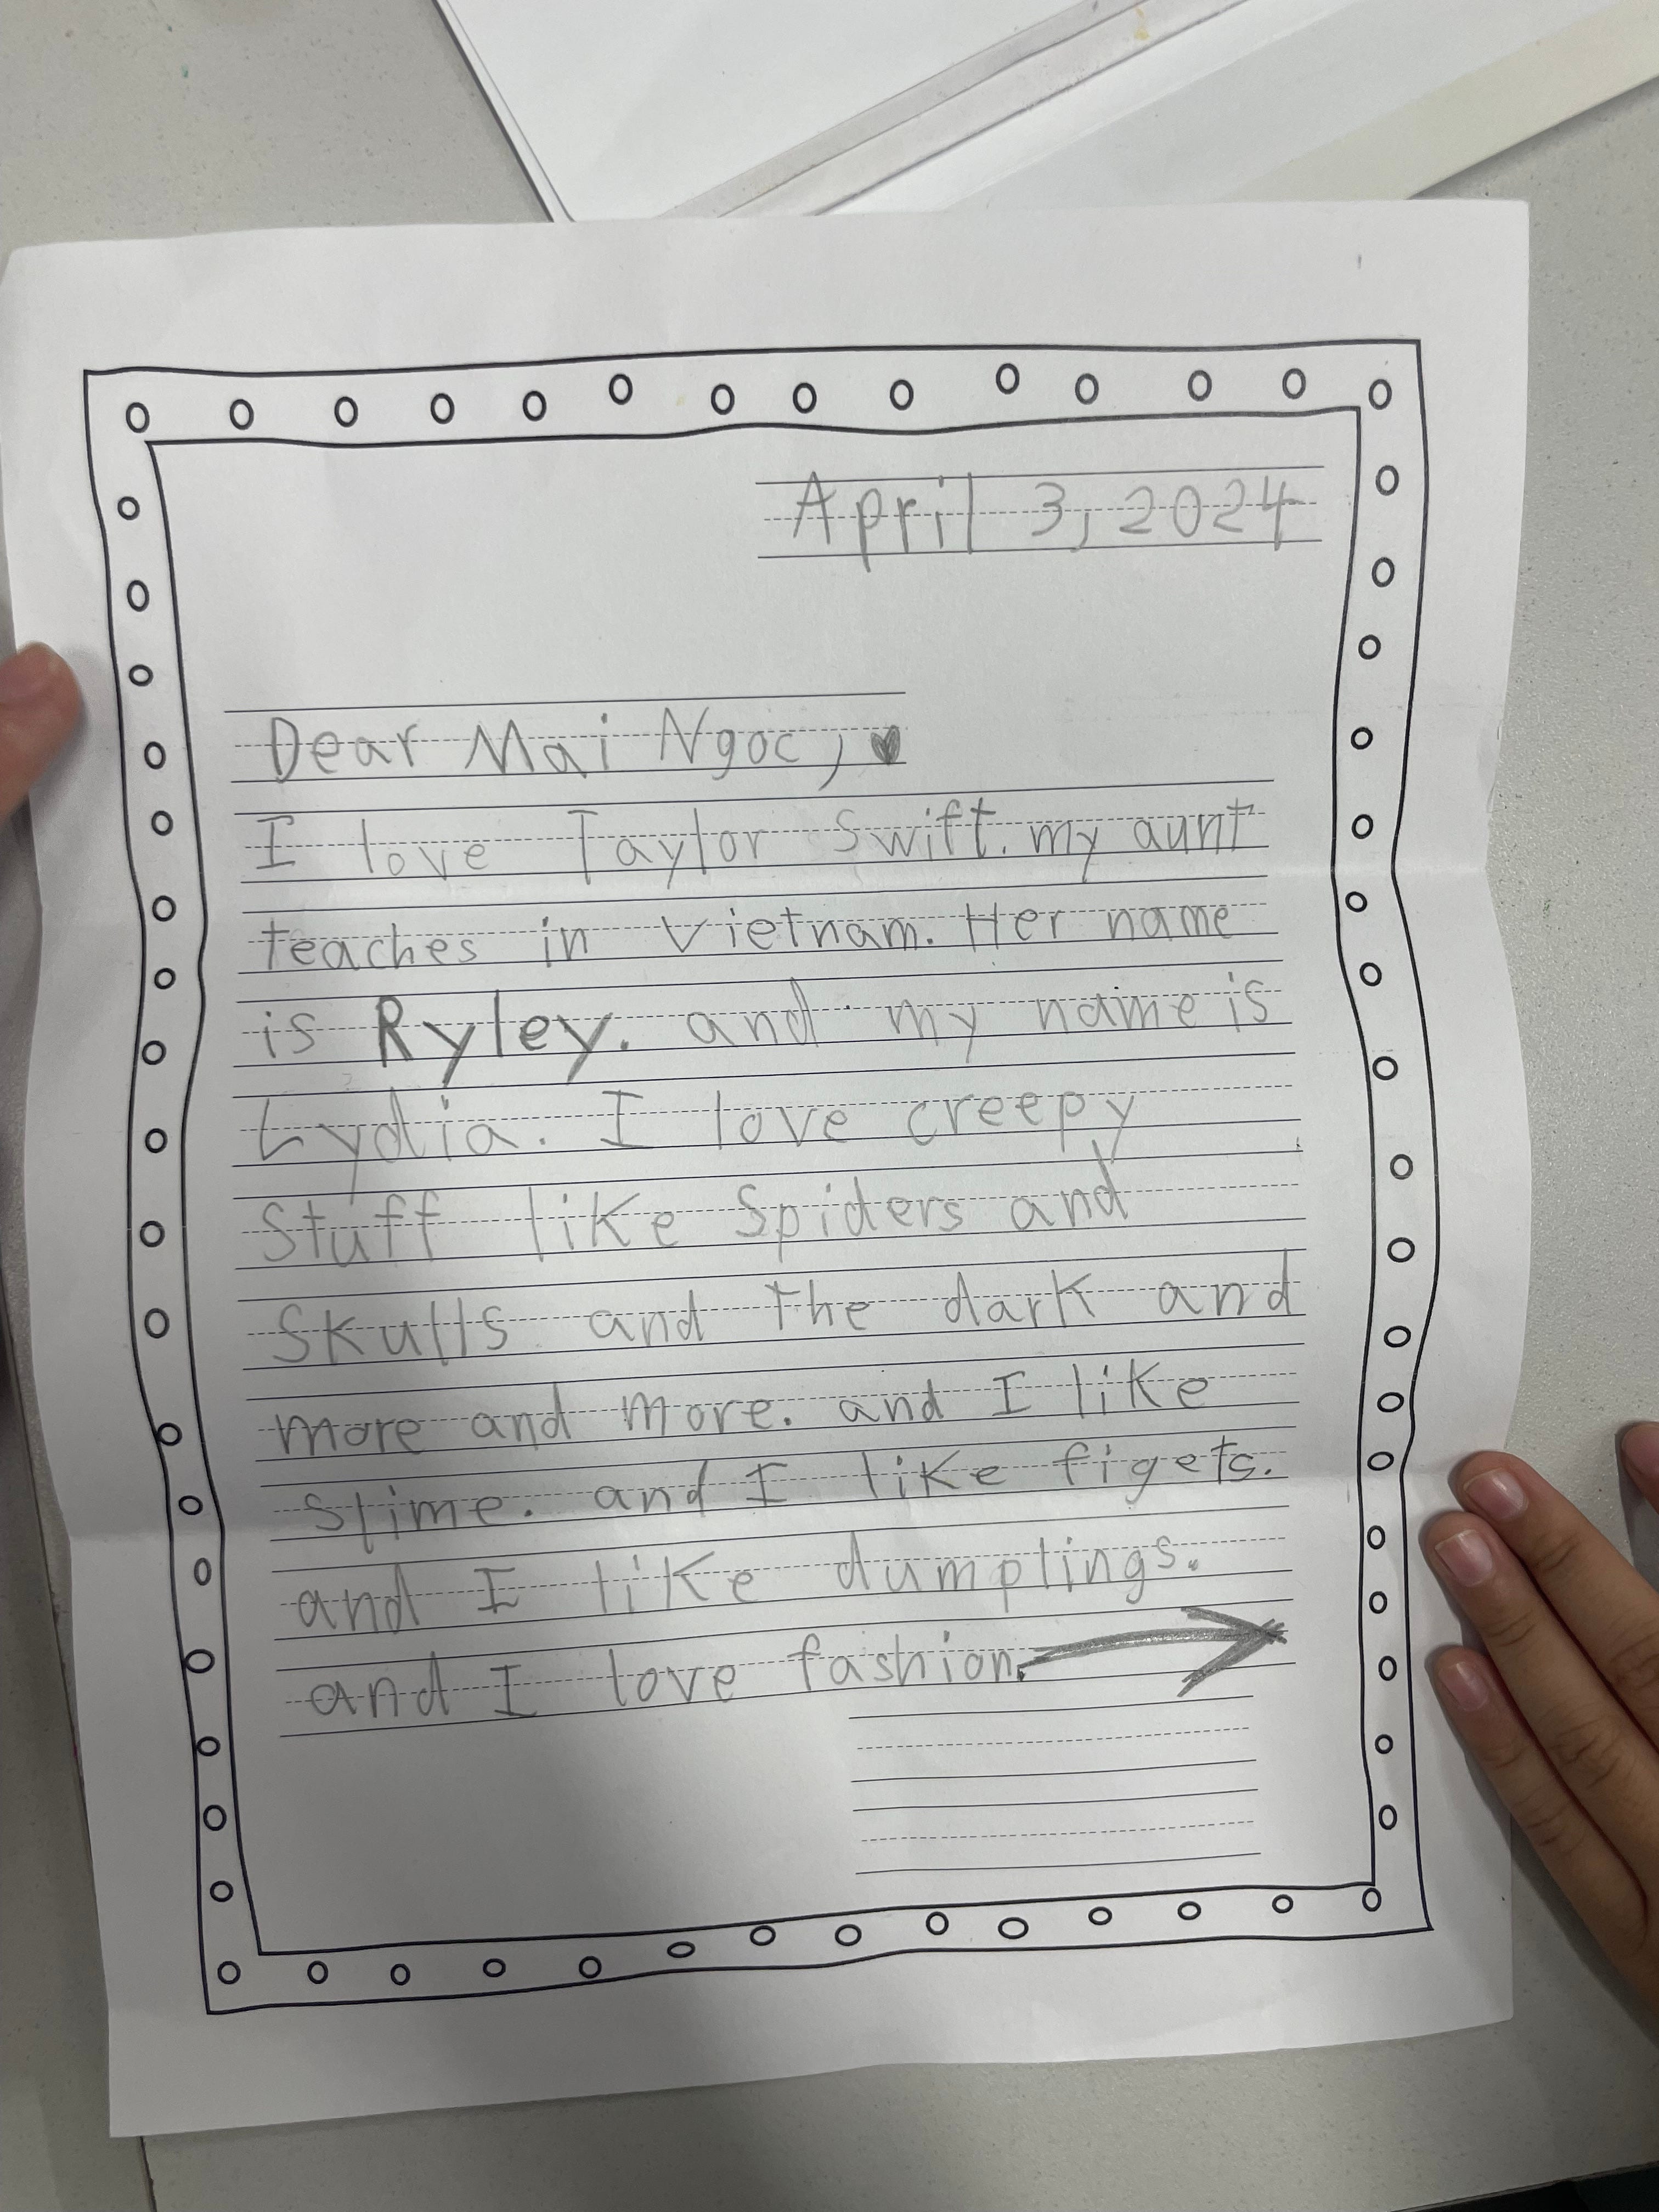 April 3, 2024
Dear Mai Ngoc, ♥
I love Taylor Swift. my aunt
teaches in Vietnam. Her name
is Ryley. and my name is
Lydia. I love creepy
Stuff like Spiders and
Skulls and the dark and
more and more. and I like
Slime. and I like figets.
and I like dumplings.
and I love fashion. →